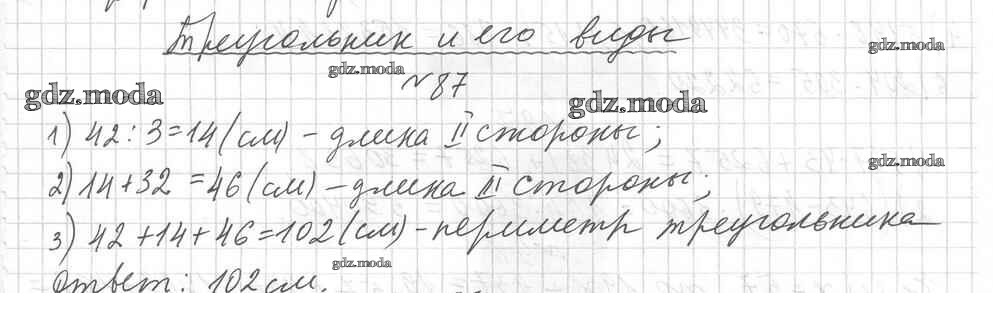 Треугольник и его виды
gdz.moda
gdz.moda
№87
gdz.moda
gdz.moda
1) 42 : 3 = 14 (см) - длина II стороны;
gdz.moda
2) 14 + 32 = 46 (см) - длина III стороны;
3) 42 + 14 + 46 = 102 (см) - периметр треугольника
gdz.moda
Ответ: 102 см.